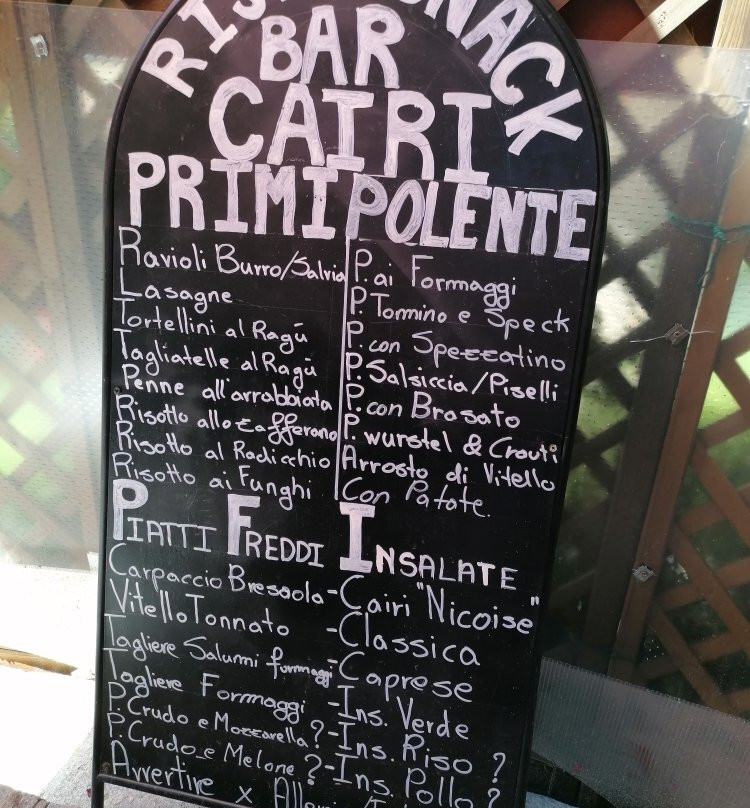 SNACK
BAR
CAIRI
PRIMI
Ravioli Burro/Salvia
Lasagne
Tortellini al Ragū
Tagliatelle al Ragū
Penne all'arrabbiata
Risotto allo zafferano
Risotto al Radicchio
Risotto ai Funghi
POLENTE
P. ai Formaggi
P. Tomino e Speck
P. con Spezzatino
P. Salsiccia/Piselli
P. con Brasato
P. wurstel & Crauti
Arrosto di Vitello
Con Patate.
PIATTI FREDDI
Carpaccio Bresaola
Vitello Tonnato
Tagliere Salumi formaggi
Tagliere Formaggi
P. Crudo e Mozzarella ?
P. Crudo e Melone ?
INSALATE
-Cairi "Nicoise"
-Classica
-Caprese
-Ins. Verde
-Ins. Riso ?
-Ins. Pollo ?
Avvertire x